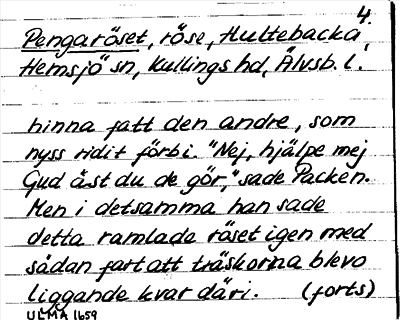 4.
Pengaröset, röse, Hultebacka,
Hemsjö sn, Kullings hd, Älvsb. l.
hinna fatt den andre, som
nyss ridit förbi. "Nej, hjälpe mej
Gud åst du de gör," sade Packen.
Men i detsamma han sade
detta ramlade röset igen med
sådan fart att träskorna blevo
liggande kvar däri. (forts)
ULMA 1659